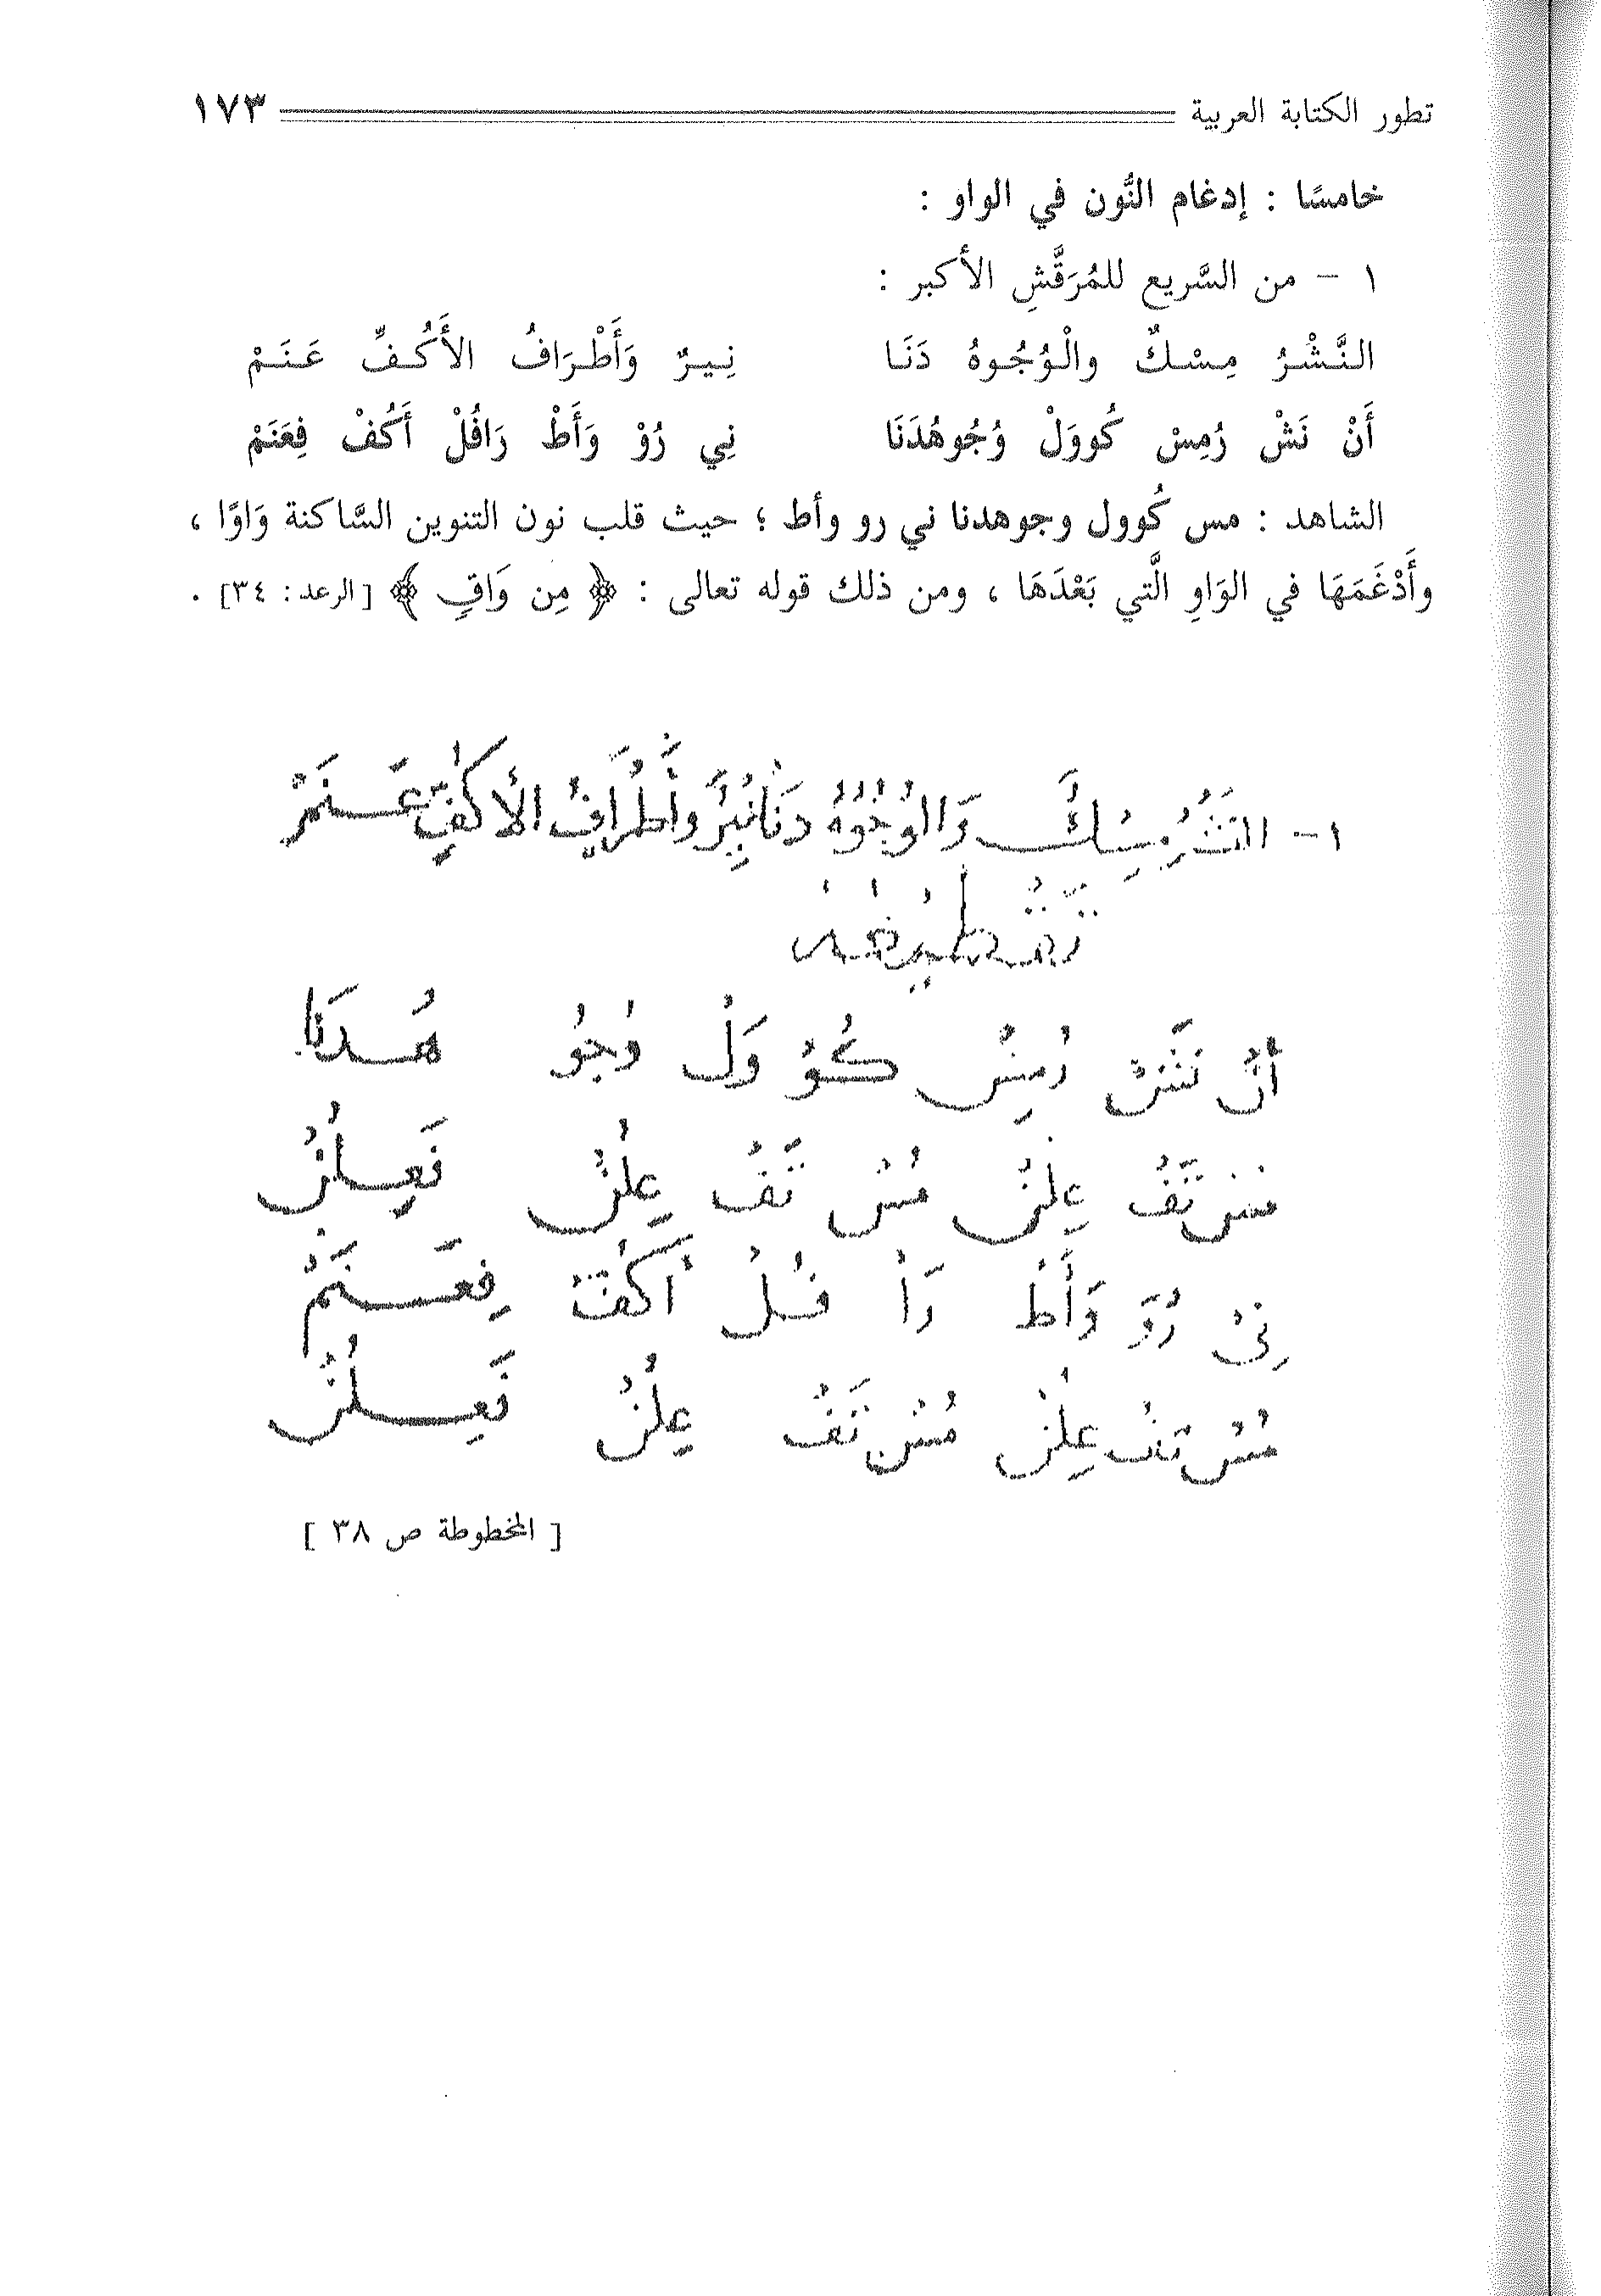 تطور الكتابة العربية ١٧٣
خامسًا : إدغام النُّون في الواو :
١ – من السَّريع للمُرَقَّشِ الأكبر :
النَّشْرُ مِسْكٌ والْوُجُوهُ دَنَا نِيرٌ وَأَطْرَافُ الأَكُفِّ عَنَمْ
أَنْ نَشْ رُمِسْ كُووَلْ وُجُوهُدَنَا نِي رُوْ وَأَطْ رَافُلْ أَكُفْ فِعَنَمْ
الشاهد : مس كُوول وجوهدنا ني رو وأط ؛ حيث قلب نون التنوين السَّاكنة وَاوًا ،
وأَدْغَمَهَا في الوَاوِ الَّتي بَعْدَهَا ، ومن ذلك قوله تعالى : ﴿ مِن وَاقٍ ﴾ [الرعد : ٣٤] .
١- النَّشْرُ مِسْكٌ وَالوُجُوهُ دَنَانِيرٌ وأَطْرَافُ الأكفِّ عَنَمْ
أنْ نَشْ رُمِسْ كُوْ وَلْ وُجُو هُدَنَا
مُسْ تَفْ عِلُنْ مُسْ تَفْ عِلُنْ فَعِلُنْ
نِيْ رُوْ وَأَطْ رَاْ فُلْ أَكُفْ فِعَنَمْ
مُسْ تَفْ عِلُنْ مُسْ تَفْ عِلُنْ فَعِلُنْ
[ المخطوطة ص ٣٨ ]